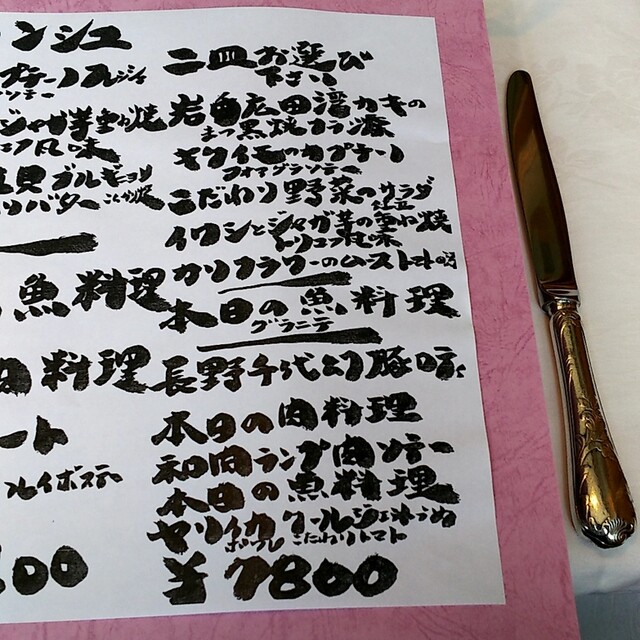 ンシュ
プチーノ フレジィ
ソテー
ジャガ芋重ね焼
風味
貝ブルギョリ
バター
魚料理
料理
ート
ルイボスティ
00
二皿お選び
下さい
岩手広田湾カキの
まっ黒焼カラ添
キクイモのカプチーノ
フォアグラソテー
こだわり野菜のサラダ
仕立
イワシとジャガ芋の重ね焼
トリュフ風味
カリフラワーのムース トマトの
本日の魚料理
グラニテ
長野千代幻豚ロティ
本日の肉料理
和肉ランプ肉ソテー
本日の魚料理
ヤリイカ
ポワレ こだわりトマト
¥7800